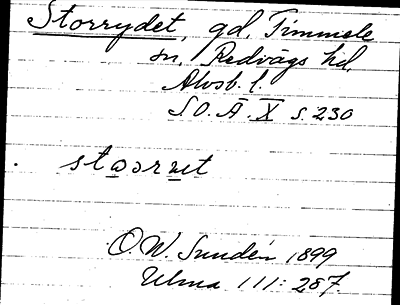 Storrydet, gd, Timmele
sn, Redvägs hd,
Älvsb. l.
S.O.Ä. X s. 230
. stoərret
O. W. Sundén 1899
Ulma 111: 287